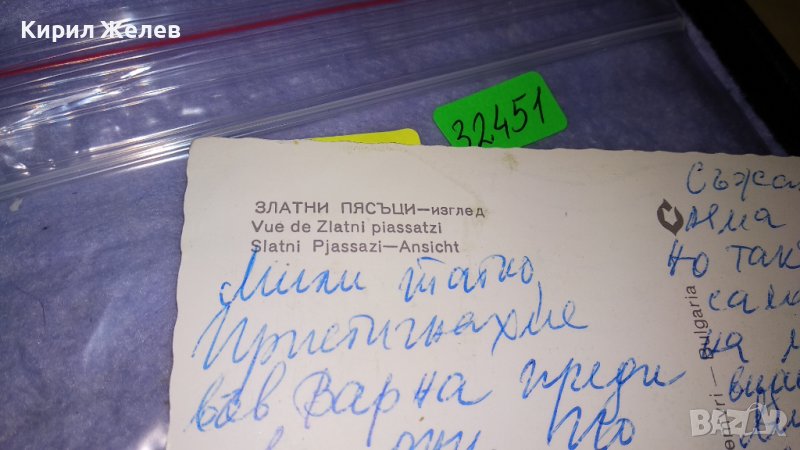 Кирил Желев
32451
ЗЛАТНИ ПЯСЪЦИ—изглед
Vue de Zlatni piassatzi
Slatni Pjassazi—Ansicht
Мили татко,
Пристигнахме
във Варна преди
Съжа
няма
но так
сама
на
Bulgaria
BAZAR